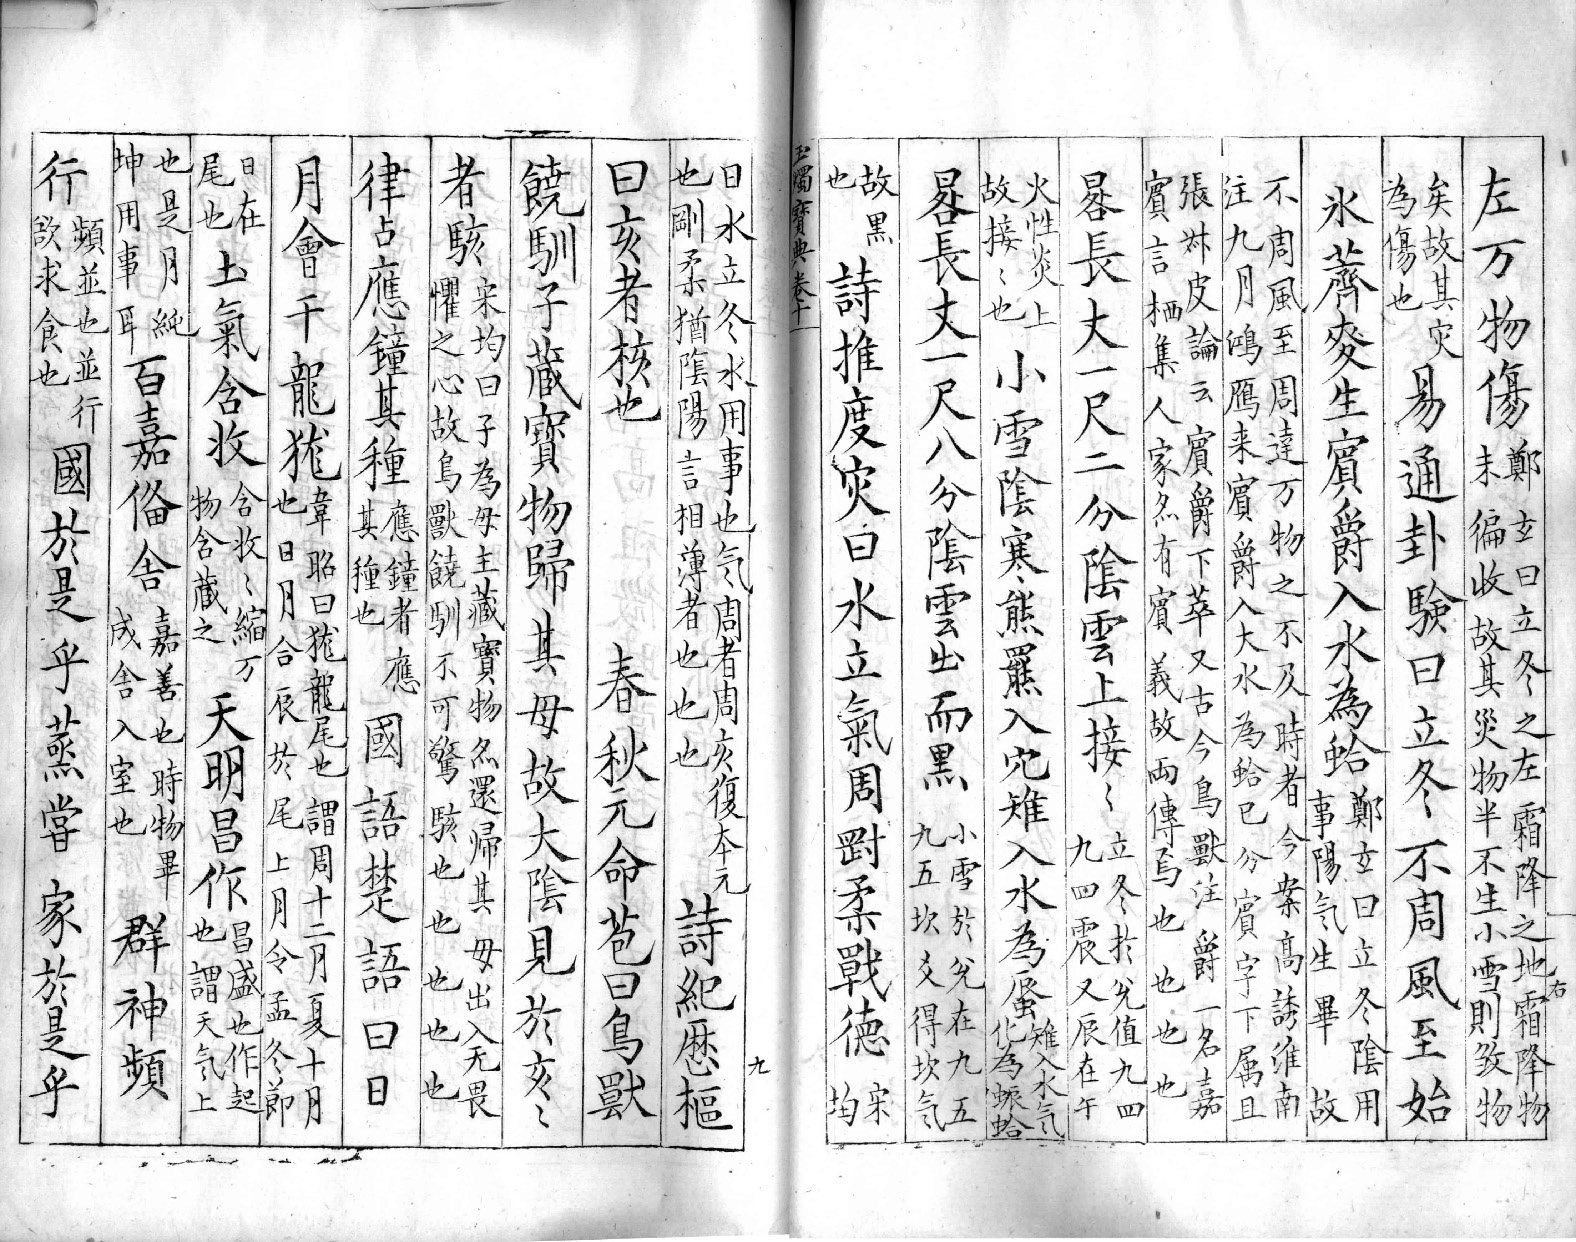 左万物傷鄭玄曰立冬之左霜降之地霜降物未徧收故其災物半不生小雪則效物
右
矣故其灾為傷也易通卦験曰立冬不周風至始
氷薺麥生賓爵入水為蛤鄭玄曰立冬陰用事陽気生畢故
不周風至周達万物之不及時者今案髙誘淮南注九月鴻鴈来賓爵入大水為蛤已分賓字下属且
張叔皮論云賓爵下萃又古今鳥獸注爵一名嘉賓言栖集人家有賓義故両傳焉也也也也
晷長大一尺二分陰雲上接〻立冬於兊值九四九四震又辰在午
火性炎上故接〻也小雪陰寒熊羆入穴雉入水為蜃雉入水気化為蜄蛤
晷長丈一尺八分陰雲出而黒小雪於兊在九五九五坎爻得坎気
故黒也詩推度灾曰水立氣周罰柔戰德宋均
玉燭寶典卷十一
曰水立冬水用事也気周者周亥復本元也剛柔猶陰陽言相薄者也也也詩紀歴樞
九
曰亥者核也 春秋元命苞曰鳥獸
饒馴子蔵寶物歸其母故大陰見於亥〻
者駭宋均曰子為母主蔵寶物還帰其母出入无畏懼之心故鳥獸饒馴不可驚駭也也也也
律占應鐘其種應鐘者應其種也國語楚語曰日
月會于龍狵韋昭曰狵龍尾也謂周十二月夏十月也日月合辰於尾上月令孟冬節
日在尾也土氣含收含收〻縮万物含蔵之天明昌作昌盛也作起也謂天气上
也是月純坤用事耳百嘉俻舎嘉善也時物畢成舎入室也群神頻
行頻並也並行欲求食也國於是乎蒸甞家於是乎